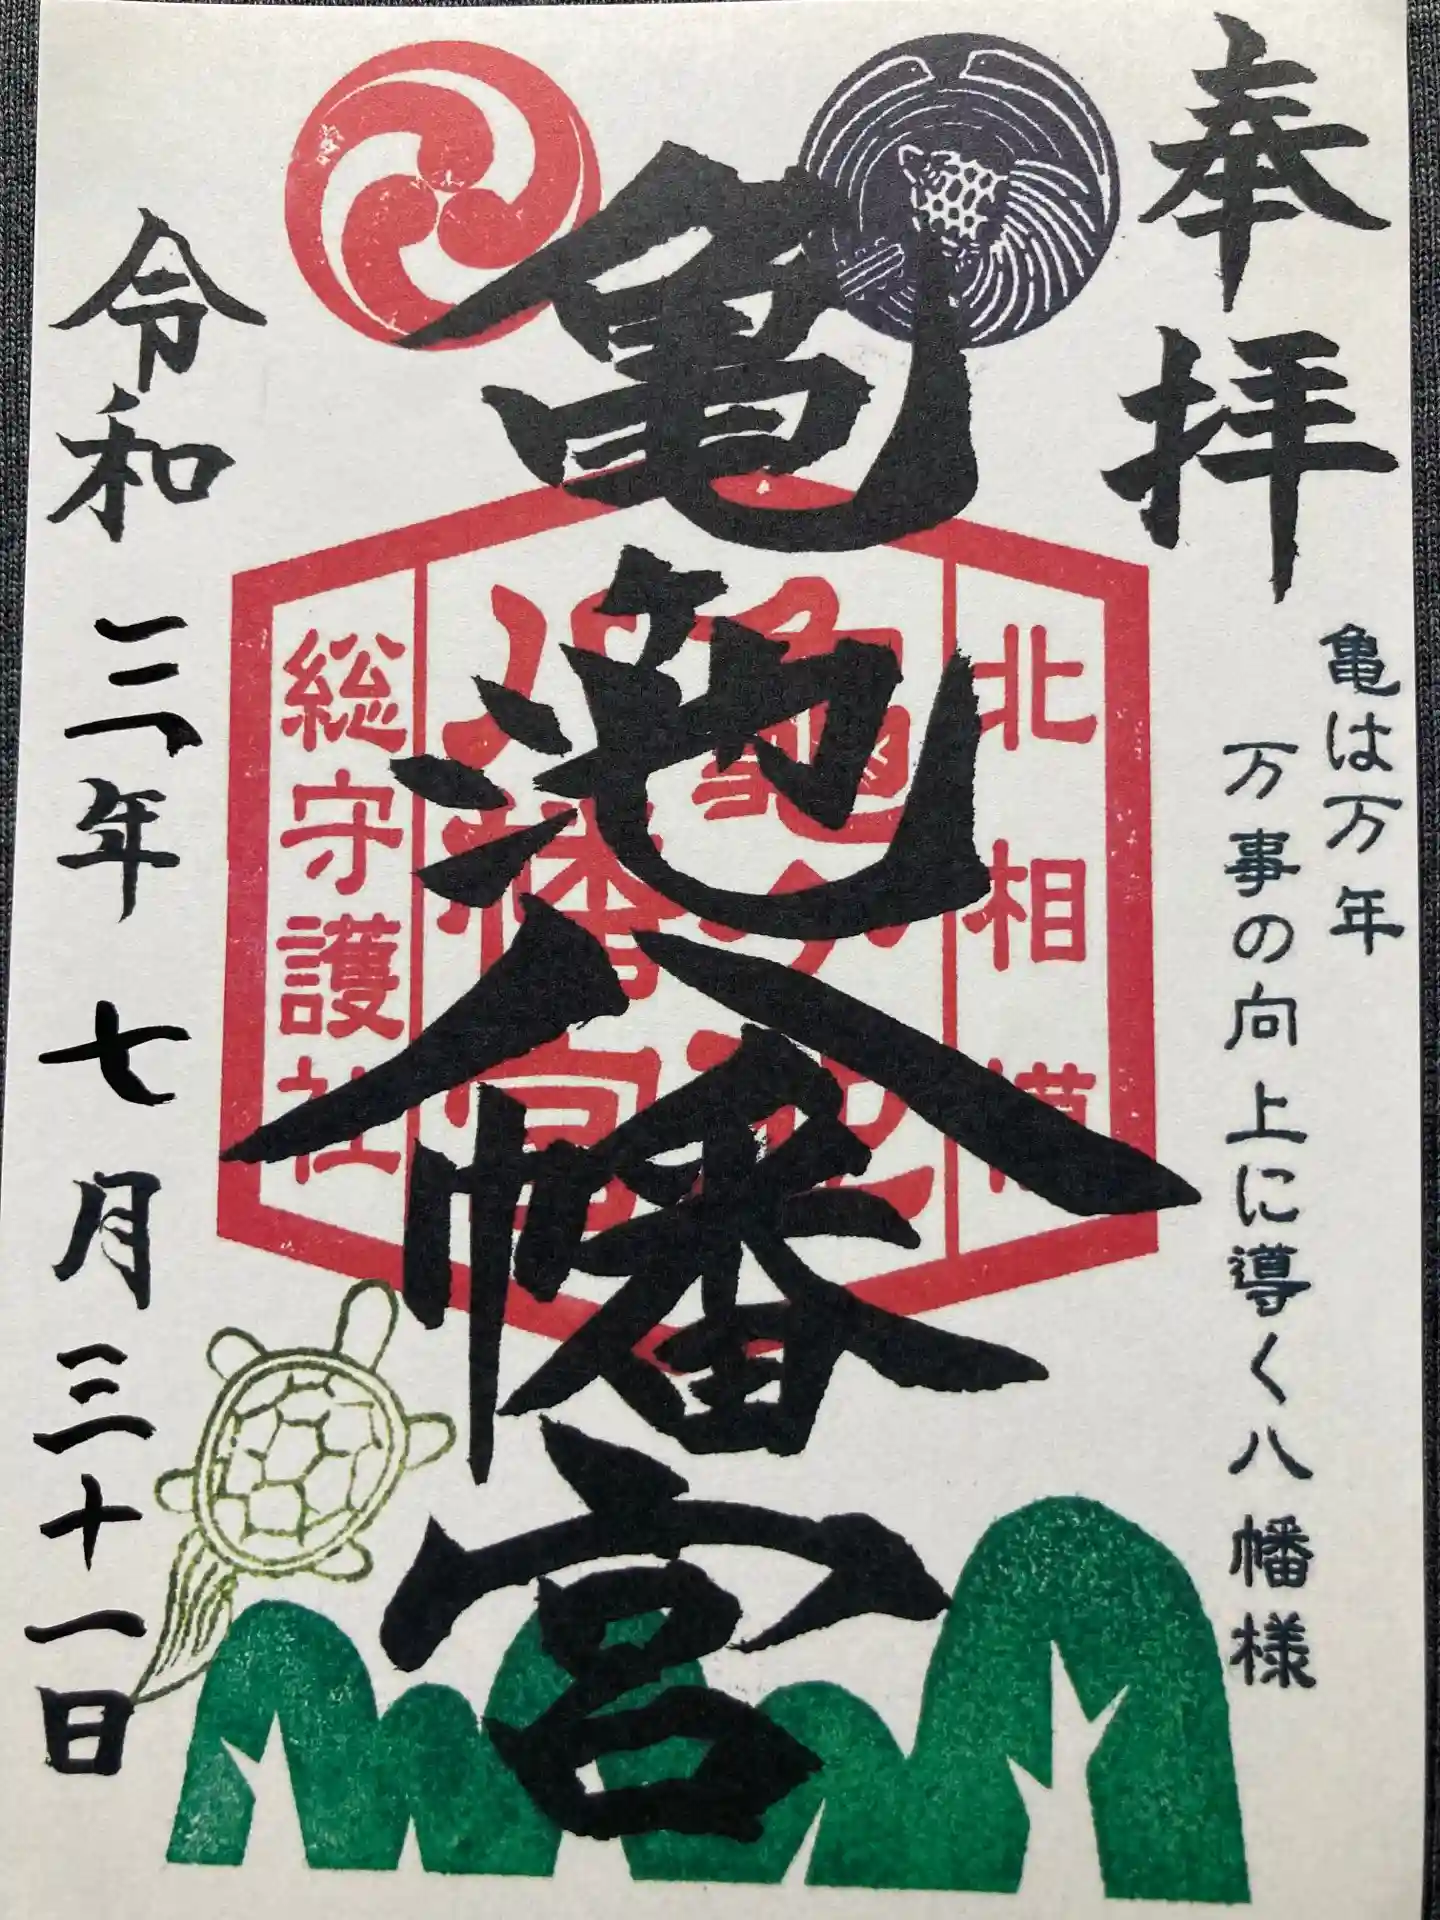 奉拝
亀は万年
万事の向上に導く八幡様
亀池八幡宮
北相模
亀ヶ池
八幡宮
総守護社
令和三年七月三十一日